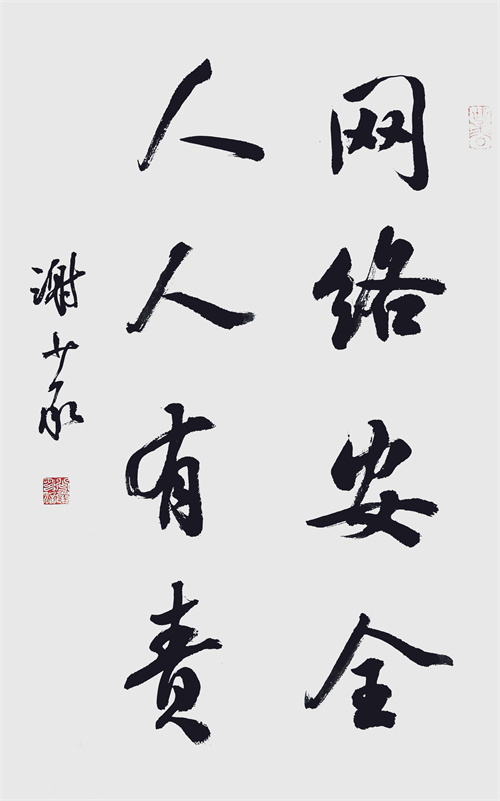 网络安全
人人有责
谢少承